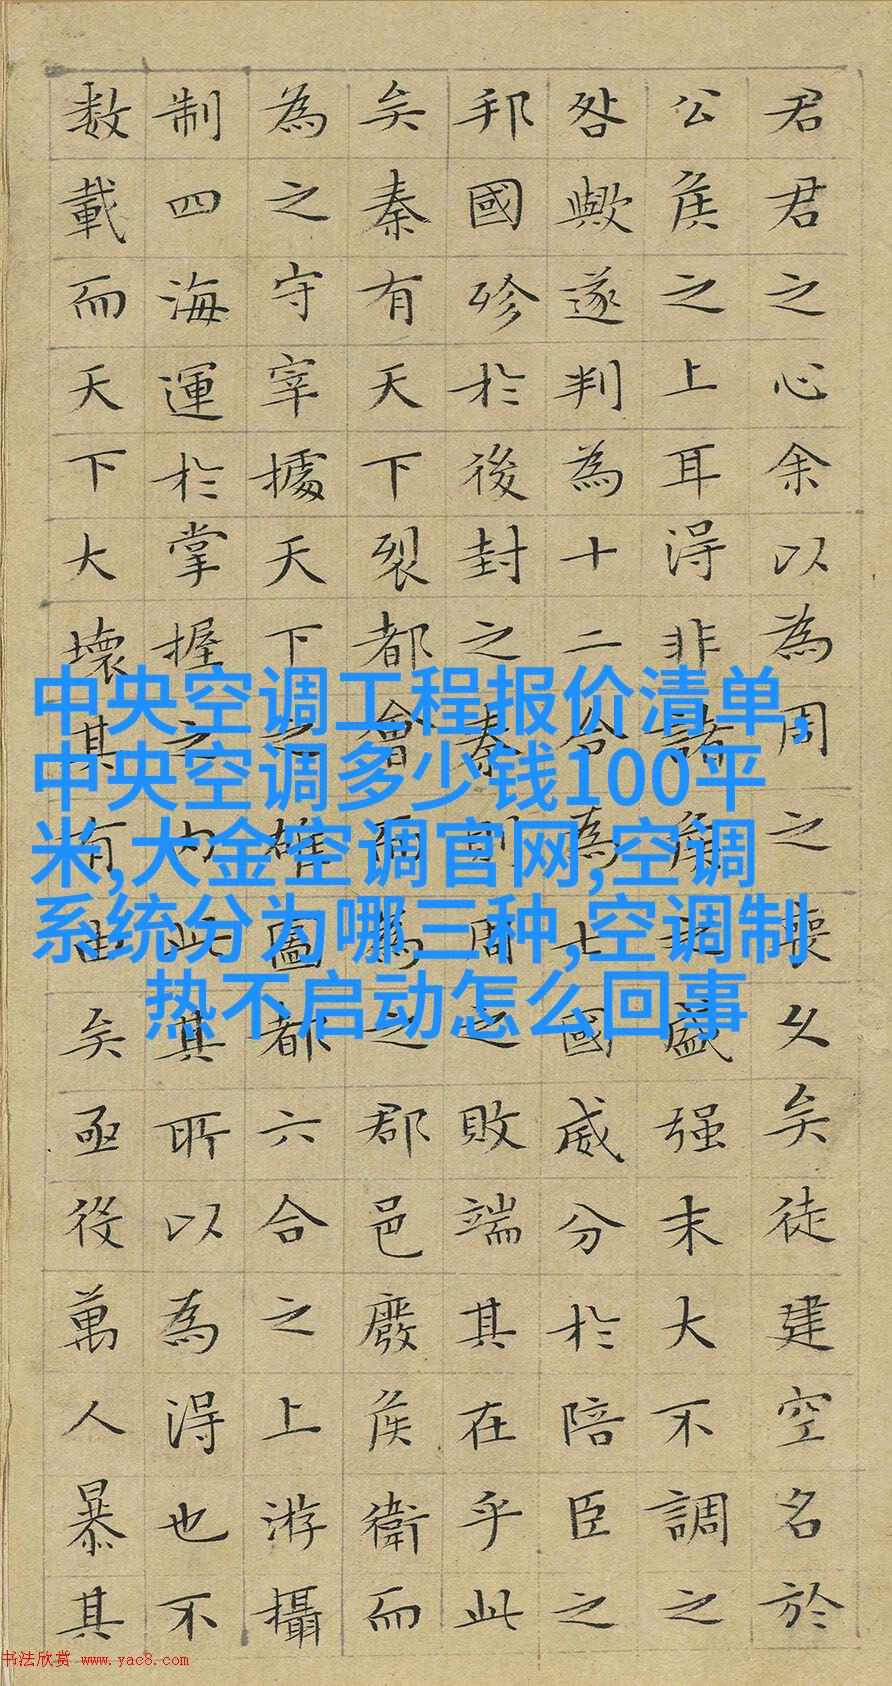 君君之心余以為周之喪久矣徒建空名於
公侯之上耳得非諸侯之盛强末大不調之
咎歟遂判為十二合為七國威分於陪臣之
邦國殄於後封之秦則周之敗端其在乎此
矣秦有天下裂都會而為之郡邑廢侯衛而
為之守宰據天下之雄圖都六合之上游攝
制四海運於掌握之内此其所以為得也不
数載而天下大壞其有由矣亟役萬人暴其
中央空调工程报价清单,
中央空调多少钱100平
米,大金空调官网,空调
系统分为哪三种,空调制
热不启动怎么回事
书法欣赏 www.yac8.com